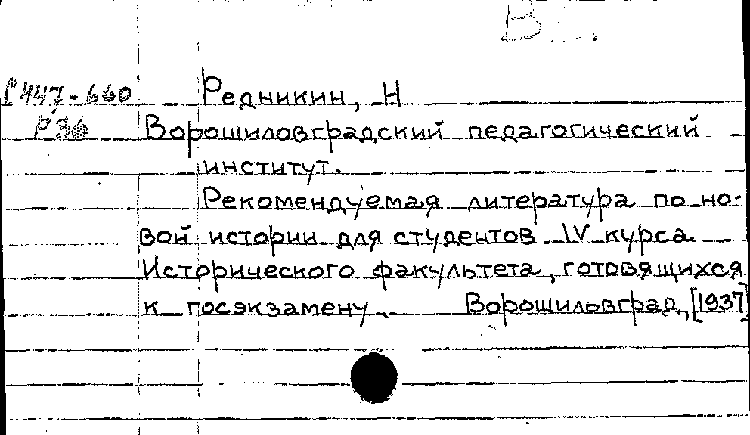 В
Р447-660 Редникин, Н
Р36 Ворошиловградский педагогический
институт.
Рекомендуемая литература по но-
вой истории для студентов IV курса
Исторического факультета, готовящихся
к госэкзамену. Ворошиловград, [1937]